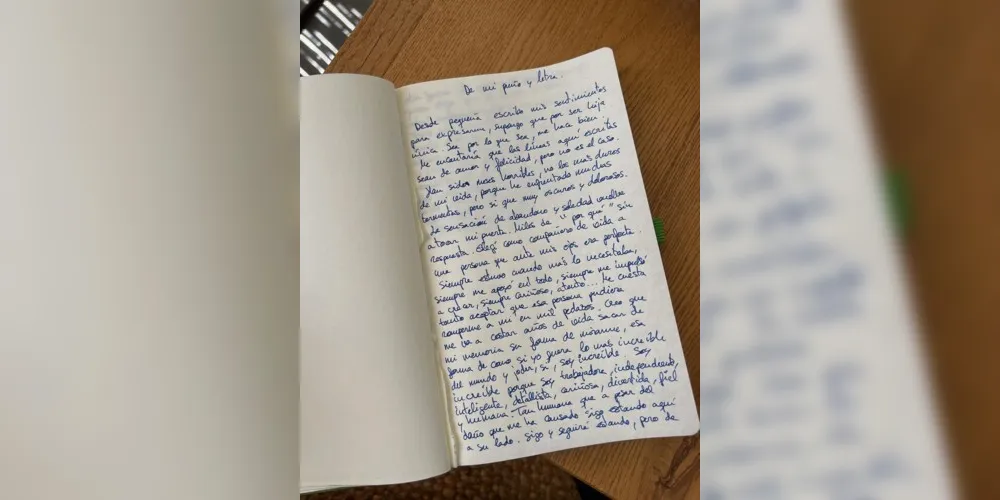 De mi puño y letra.
Desde pequeña escribo mis sentimientos
para expresarme, supongo que por ser hija
única. Sea por lo que sea, me hace bien.
Me encantaría que las líneas aquí escritas
sean de amor y felicidad, pero no es el caso.
Han sido meses horribles, no los más duros
de mi vida, porque he enfrentado muchas
tormentas, pero si que muy oscuros y dolorosos.
La sensación de abandono y soledad vuelve
a tocar mi puerta. Miles de "por qué" sin
respuesta. Elegí como compañero de vida a
una persona que ante mis ojos era perfecta.
Siempre estuvo cuando más lo necesitaba,
siempre me apoyó en todo, siempre me impulsó
a crear, siempre cariñoso, atento... Me cuesta
tanto aceptar que esa persona pudiera
romperme a mí en mil pedazos. Creo que
me va a costar años de vida sacar de
mi memoria su forma de mirarme, esa
forma de como si yo fuera lo más increíble
del mundo y joder, sí, soy increíble. Soy
increíble porque soy trabajadora, independiente,
inteligente, detallista, cariñosa, divertida, fiel
y humana. Tan humana que a pesar del
daño que me ha causado sigo estando aquí
a su lado. Sigo y seguiré estando, pero de